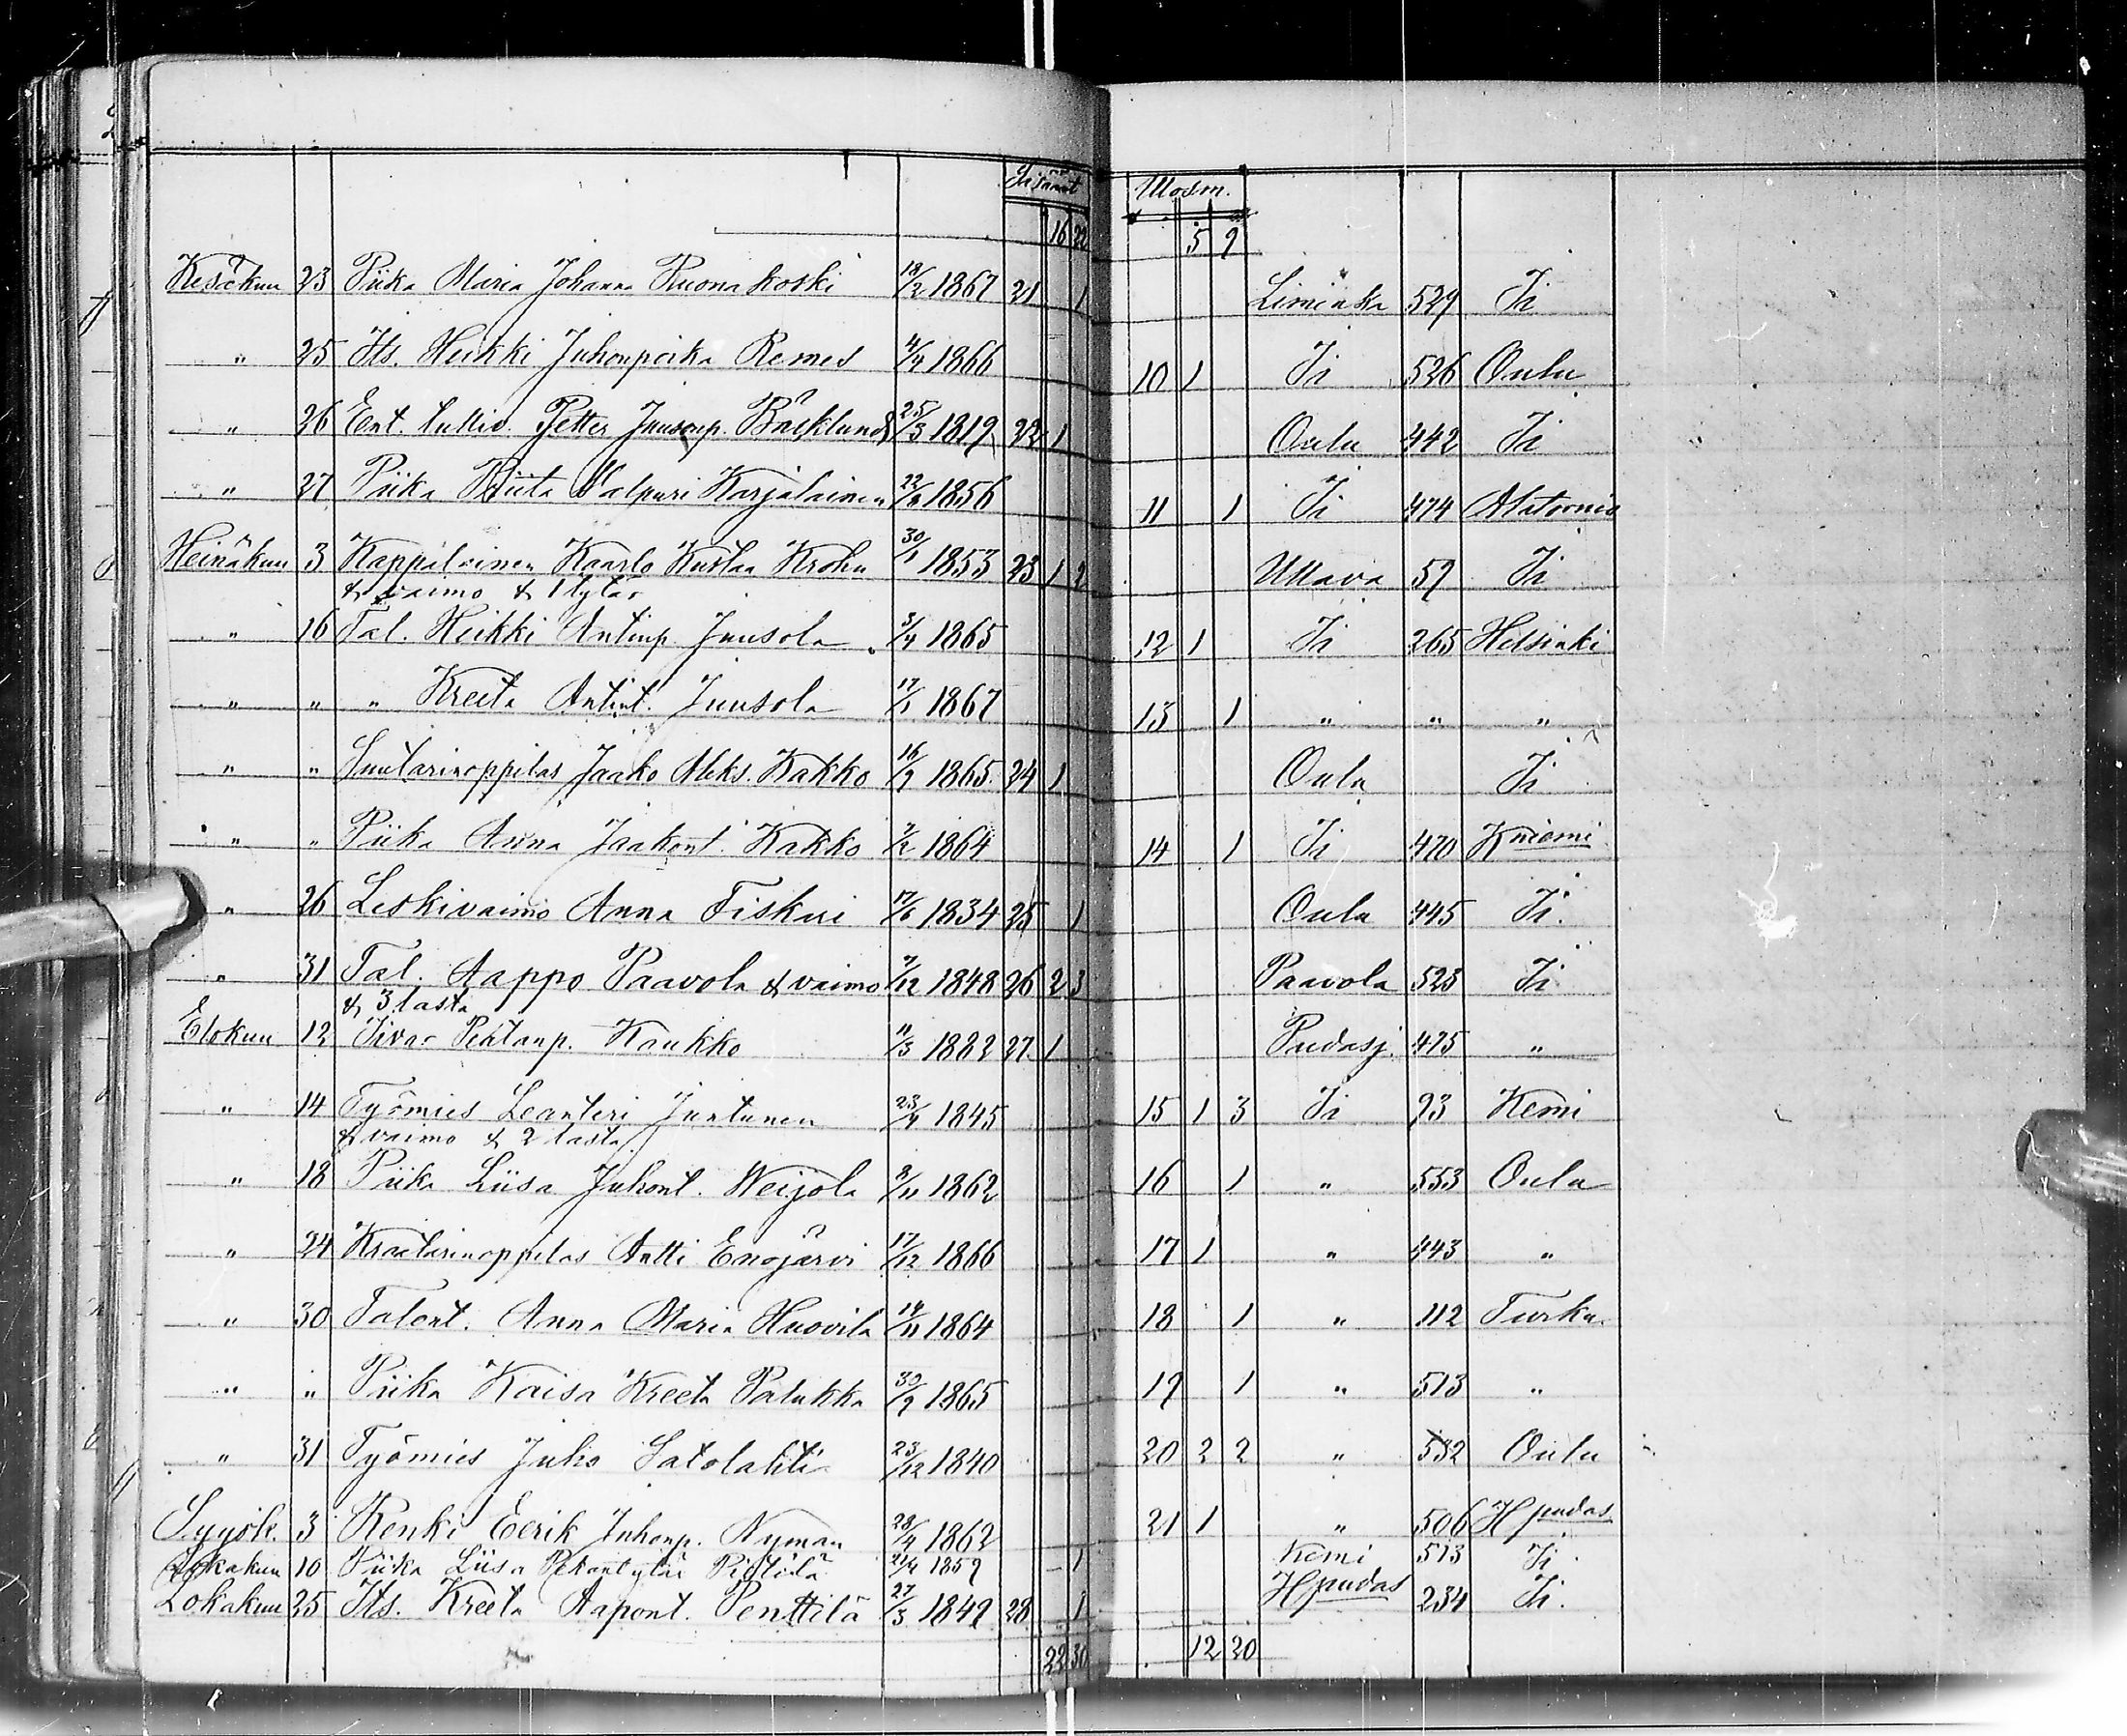 Sisään Ulosm.
16 22 5 9
Kesäkuu 23 Piika Maria Johanna Ruonakoski 18/2 1867 21 1 Liminka 529 Ii
" 25 Its. Heikki Juhonpoika Remes 4/4 1866 10 1 Ii 526 Oulu
" 26 Ent. tulliv. Petter Juusonp. Bäcklund 25/3 1819 22 1 Oulu 442 Ii
" 27 Piika Riita Valpuri Karjalainen 22/8 1856 11 1 Ii 474 Alatornio
Heinäkuu 3 Kappalainen Kaarlo Kustaa Krohn 30/1 1853 23 1 2 Ullava 59 Ii
& vaimo & 1 tytär
" 16 Tal. Heikki Antinp. Juusola 3/4 1865 12 1 Ii 265 Helsinki
" " " Kreeta Antint. Juusola 17/1 1867 13 1 " " "
" " Suutarinoppilas Jaako Aleks. Kakko 16/9 1865 24 1 Oulu Ii
" " Piika Anna Jaakont. Kakko 7/2 1864 14 1 Ii 470 Kniemi
" 26 Leskivaimo Anna Fiskari 17/6 1834 25 1 Oulu 445 Ii.
" 31 Tal. Aappo Paavola & vaimo 7/12 1848 26 2 3 Paavola 523 Ii
& 3 lasta
Elokuu 12 Iivar Pertanp. Kaukko 11/3 1882 27 1 Pudasj. 475 "
" 14 Työmies Leanteri Juntunen 23/4 1845 15 1 3 Ii 93 Kemi
& vaimo & 2 lasta
" 18 Piika Liisa Juhont. Weijola 8/11 1862 16 1 " 553 Oulu
" 24 Kraatarinoppilas Antti Enojärvi 17/12 1866 17 1 " 443 "
" 30 Talont. Anna Maria Huovila 14/11 1864 18 1 " 112 Turku.
" " Piika Kaisa Kreeta Palukka 30/9 1865 19 1 " 513 "
" 31 Työmies Juho Satolahti 23/12 1840 20 2 2 " 532 Oulu
Syysk. 3 Renki Eerik Juhonp. Nyman 28/4 1862 21 1 " 506 Hpudas
Lokakuu 10 Piika Liisa Pekantytär 21/4 1859 1 Kemi 513 Ii
Lokakuu 25 Its. Kreeta Aapont. Penttilä 27/3 1849 28 1 Hpudas 234 Ii.
22 30 12 20